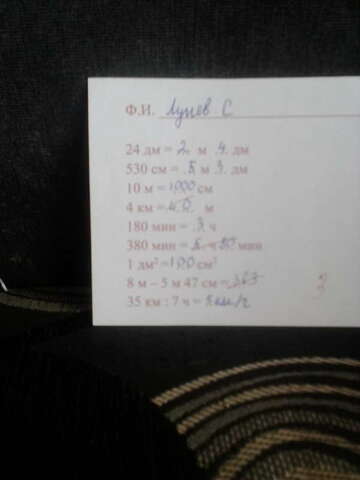 Ф.И. Лунев С.
24 дм = 2 м 4 дм
530 см = 5 м 3 дм
10 м = 1000 см
4 км = 40 м
180 мин = 3 ч
380 мин = мин
1 дм² = 100 см²
8 м – 5 м 47 см =
35 км : 7 ч = 5 км/ч